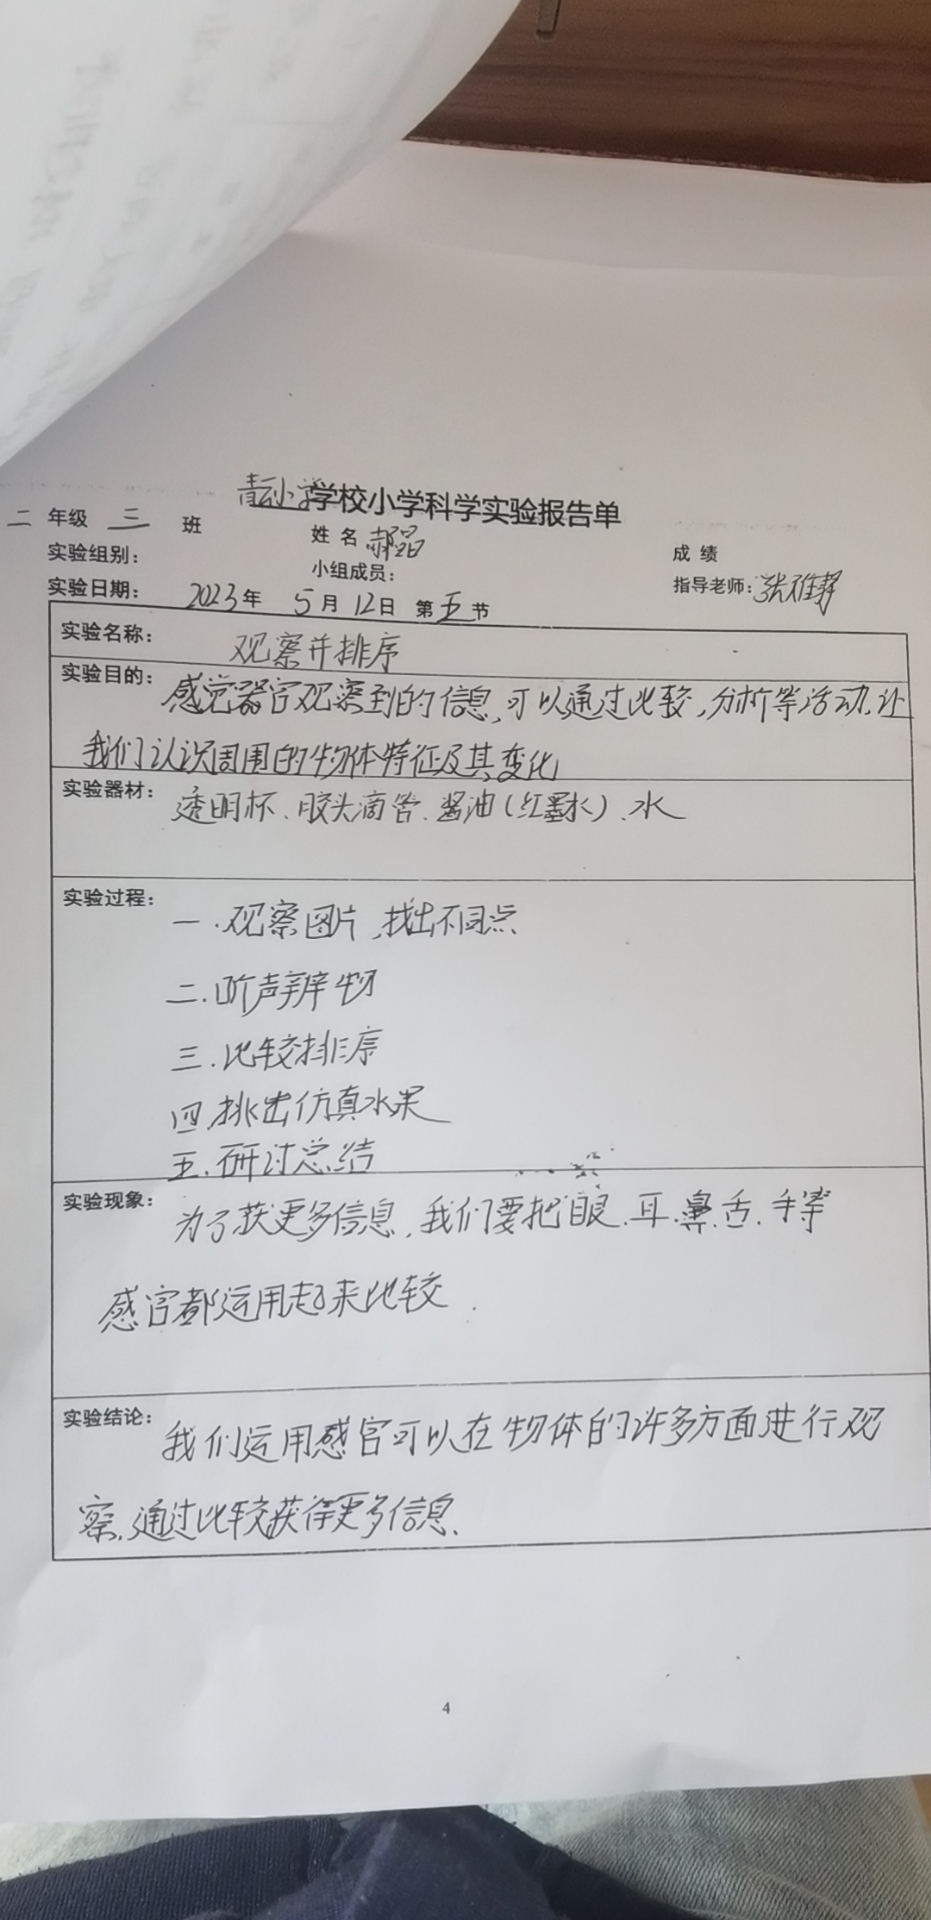 青云小学学校小学科学实验报告单
二 年级 三 班
姓 名 郝昭
成 绩
实验组别：
小组成员：
指导老师：张雅静
实验日期： 2023年 5月 12日 第五节
实验名称： 观察并排序
实验目的： 感觉器官观察到的信息,可以通过比较,分析等活动,让
我们认识周围的物体特征及其变化
实验器材： 透明杯、胶头滴管、酱油(红墨水)、水
实验过程： 一.观察图片,找出不同点
二.听声辨物
三.比较排序
四.挑出仿真水果
五.研讨总结
实验现象： 为了获更多信息,我们要把眼、耳、鼻、舌、手等
感官都运用起来比较.
实验结论： 我们运用感官可以在物体的许多方面进行观
察,通过比较获得更多信息.
4